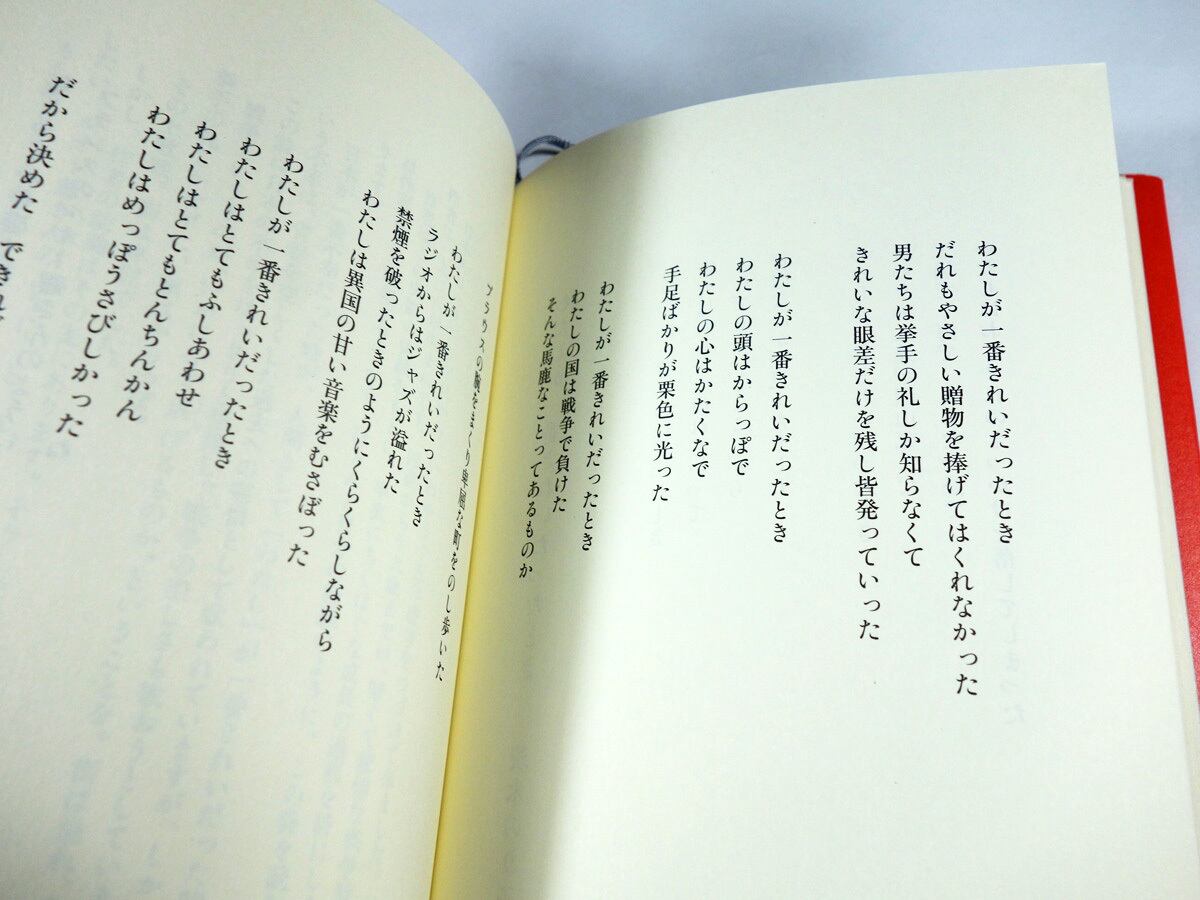 わたしが一番きれいだったとき
だれもやさしい贈物を捧げてはくれなかった
男たちは挙手の礼しか知らなくて
きれいな眼差だけを残し皆発っていった
わたしが一番きれいだったとき
わたしの頭はからっぽで
わたしの心はかたくなで
手足ばかりが栗色に光った
わたしが一番きれいだったとき
わたしの国は戦争で負けた
そんな馬鹿なことってあるものか
ブラウスの腕をまくり卑屈な町をのし歩いた
わたしが一番きれいだったとき
ラジオからはジャズが溢れた
禁煙を破ったときのようにくらくらしながら
わたしは異国の甘い音楽をむさぼった
わたしが一番きれいだったとき
わたしはとてもふしあわせ
わたしはとてもとんちんかん
わたしはめっぽうさびしかった
だから決めた　できれば